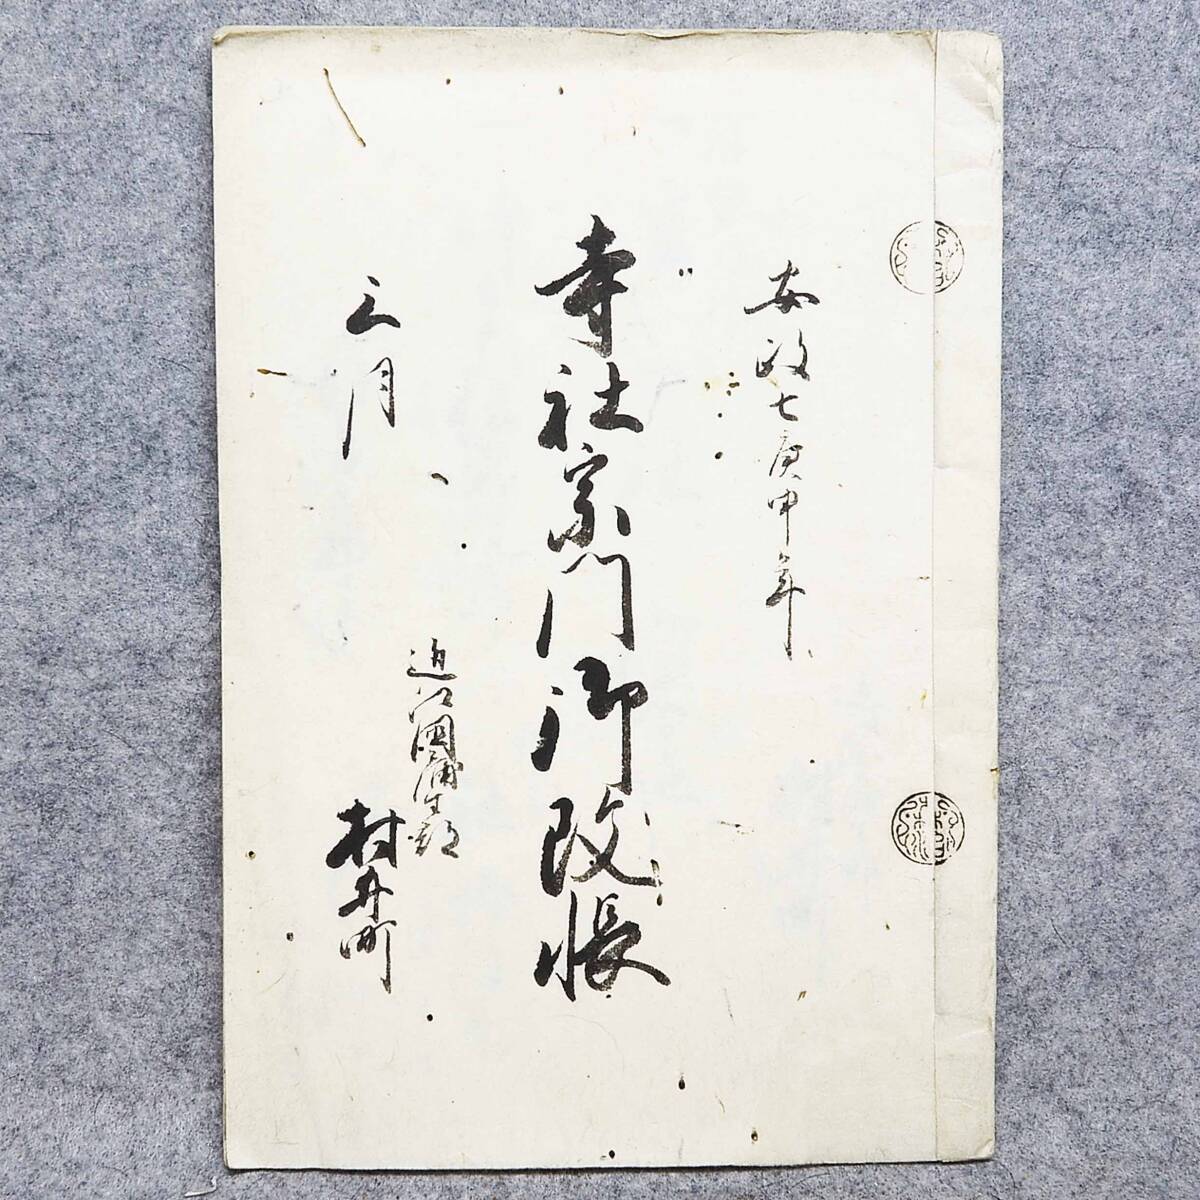 安政七庚申年
寺社宗門御改帳
三月
近江國蒲生郡
村井町